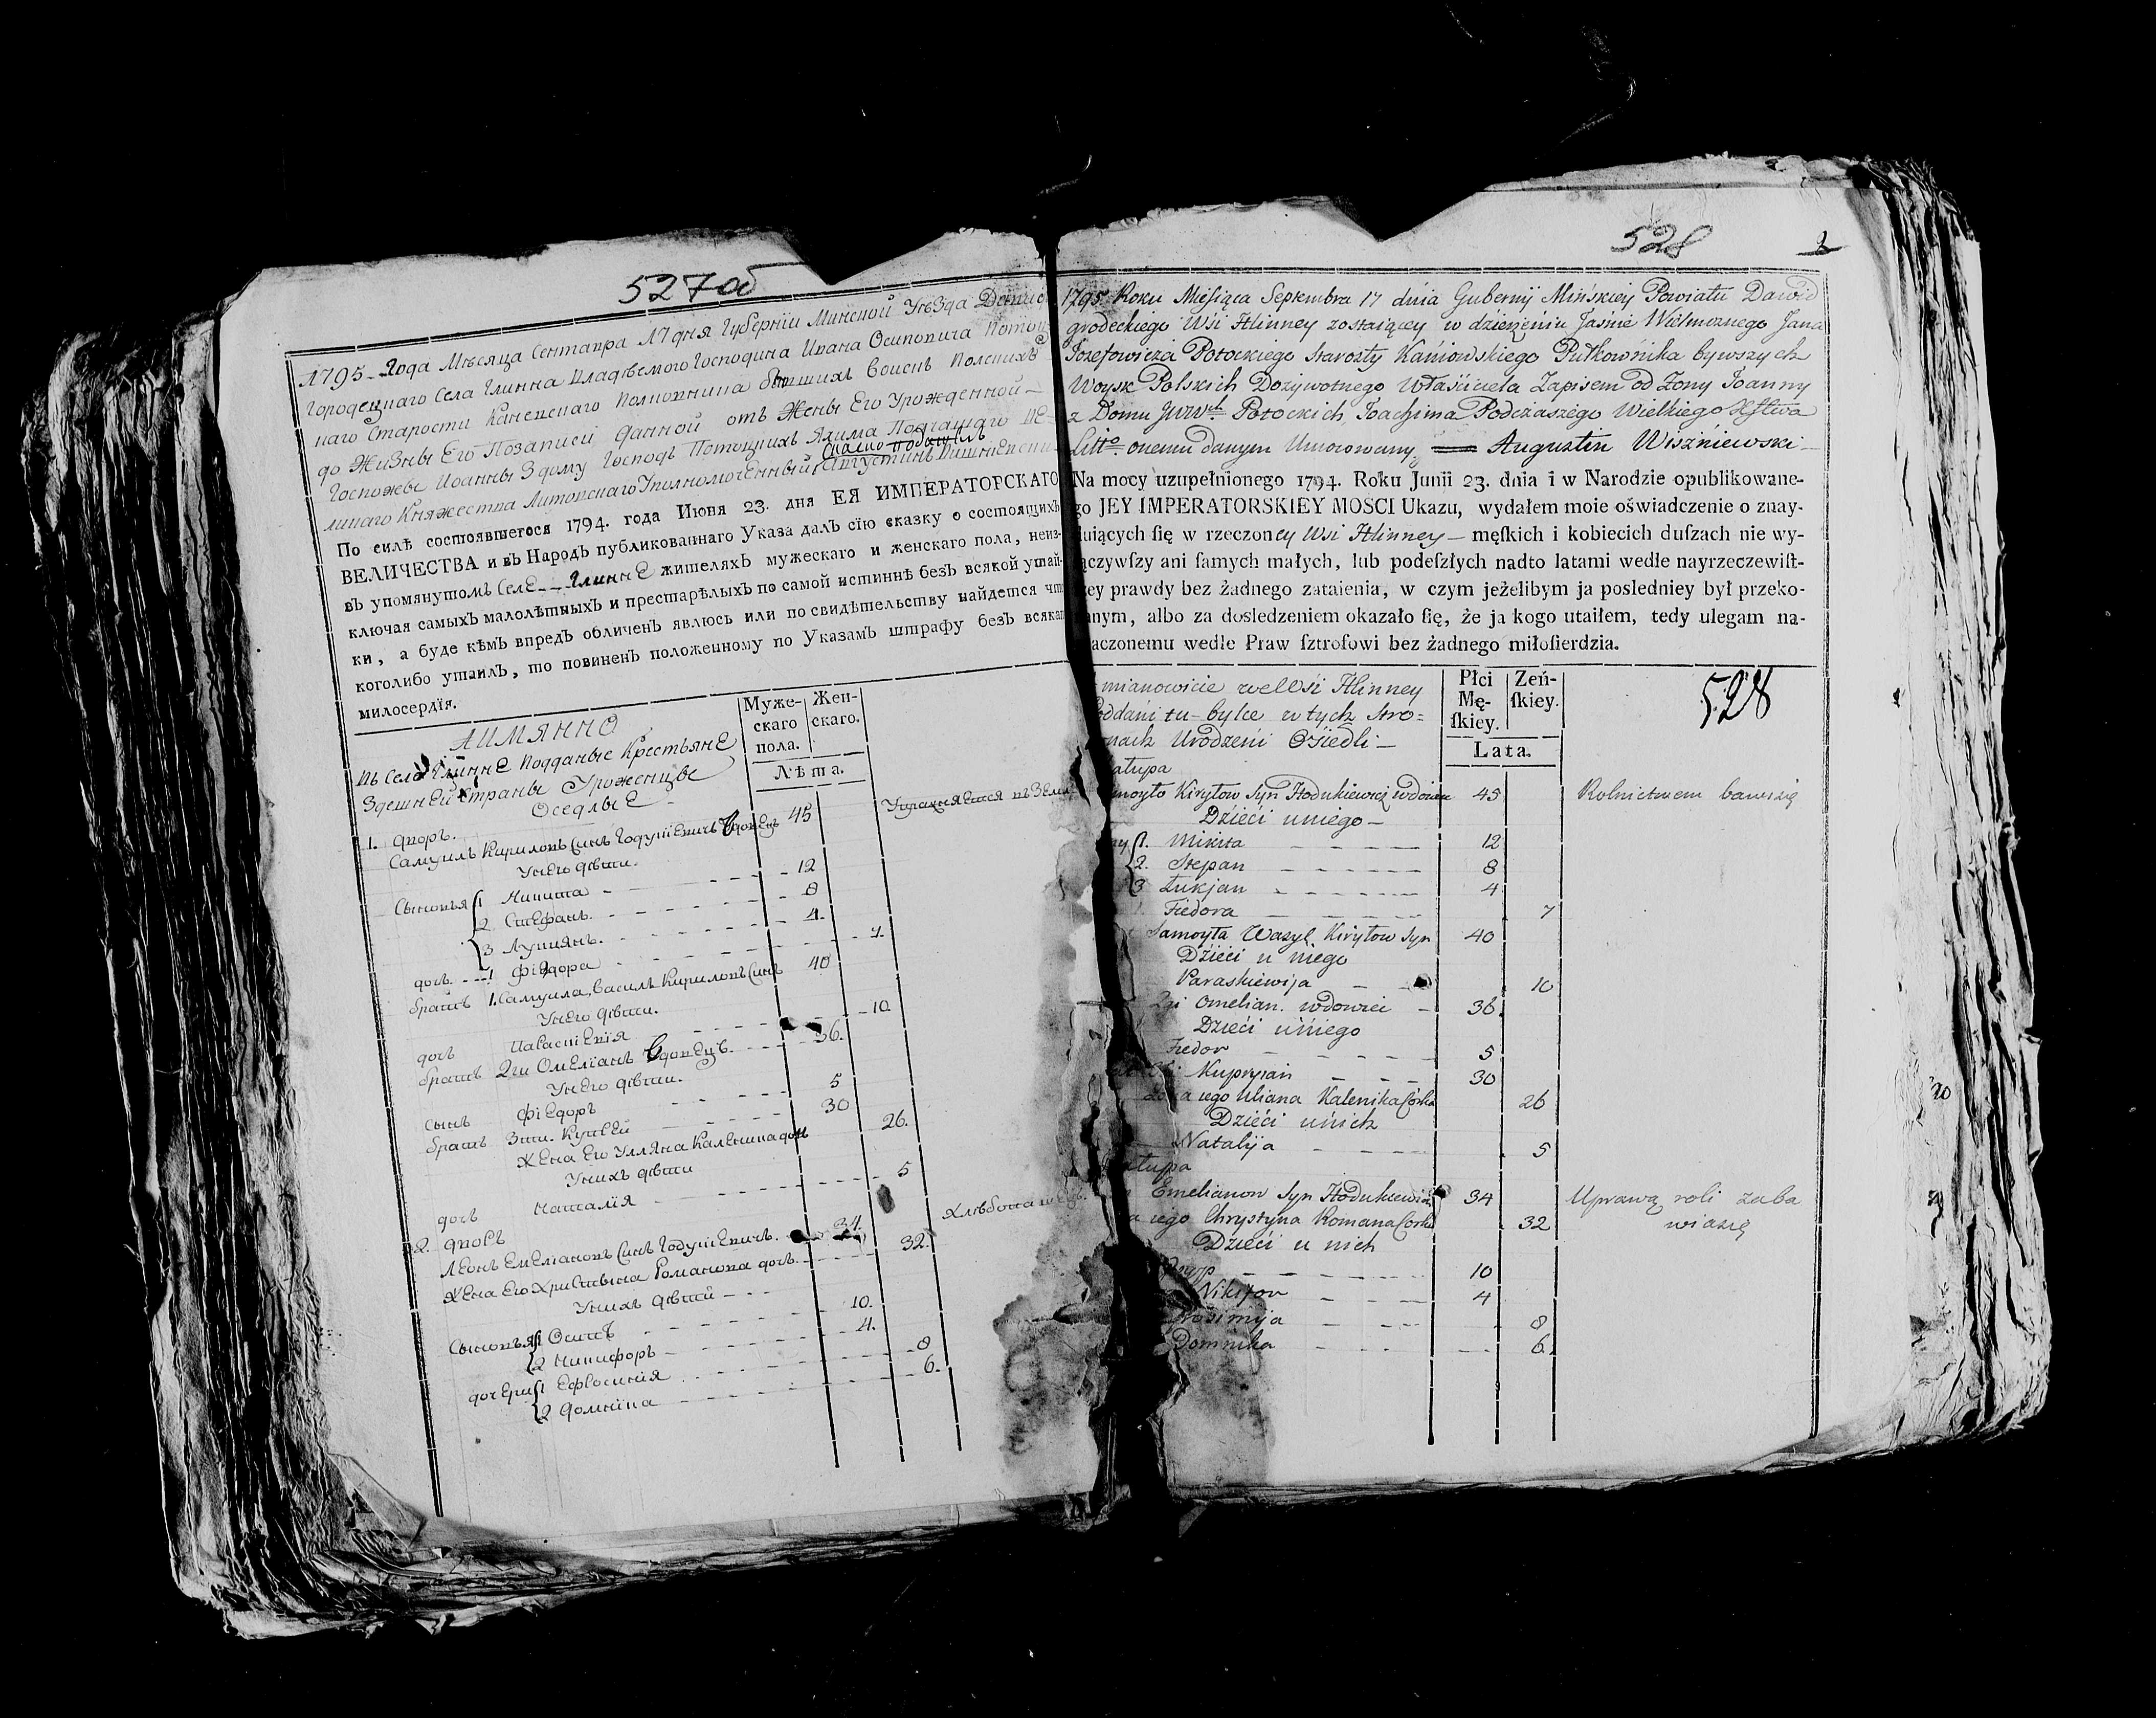 527об
1795 года Мѣсяца Сентавра 17 дня Губернїи Минской Уѣзда Давид
городецкаго Села Глинна владѣемого Господина Ивана Осиповича Потоц
каго Старости Каневскаго Полковника бывшихъ воискъ Полскихъ
до Жизны Его Позаписи данной отъ Жены Его Урожденной
Госпожы Иоанны Здому Господъ Потоцкихъ Яхима Подчашаго ве
ликаго Княжества Литовскаго Уполномоченный Августинъ Вишневски
По силѣ состоявшегося 1794. года Июня 23. дня ЕЯ ИМПЕРАТОРСКАГО
ВЕЛИЧЕСТВА и въ Народъ публикованнаго Указа далъ сїю сказку о состоящихъ
въ упомянутомъ Селе Глинне жителяхъ мужескаго и женскаго пола, неиз-
ключая самыхъ малолѣтныхъ и престарѣлыхъ по самой истиннѣ безъ всякой утай-
ки, а буде кѣмъ впредъ обличенъ явлюсь или по свидѣтельству найдется что
коголибо утаилъ, то повиненъ положенному по Указамъ штрафу безъ всякаго
милосердїя.
Муже-
скаго
пола.
Жен-
скаго.
Лѣта.
АИМЯННО
въ Селе Глинне Подданые Крестьяне
Здешней страны Уроженцы
Оседлые
1. дворъ.
Самуилъ Кириловъ Синъ Годуниевичъ Вдовецъ 45
Унего дѣтти.
Сыновья 1 Никита 12
2 Стефанъ. 8
3 Лукиянъ. 4.
дочь 1 Фїедора 7.
братъ 1. Самуила, Василь Кириловъ Синъ 40
Унего дѣтти.
дочь Параскïевïя 10.
братъ 2ги Омелїанъ Вдовецъ. 36.
Унего дѣтти.
сынъ Фїедоръ 5
братъ 3ти. Купреи 30
Жена его Улляна Каленика дочь 26.
Унихъ дѣтти
дочь Наталїя 5
2. дворъ
Леонъ Емелїановъ Синъ Годунïевичъ. 34.
Жена его Христына Романова дочь. 32.
Унихъ дѣтти
Сыновья 1 Осипъ 10.
2 Никифоръ 4.
дочери 1 Ефросинїя 8
2 Домнїка 6.
528
1795 Roku Miesiąca Septembra 17 dnia Gubernij Mińskiey Powiatu Dawid
grodeckiego Wśi Hlinney zostaiącey w dzierżeniu Jaśnie Wielmożnego Jana
Jozefowicza Potockiego Starosty Kaniowskiego Pułkownika bywszych
Woysk Polskich Dożywotnego Właściciela Zapisem od Zony Joanny
z Domu JWWch Potockich, Joachima Podczaszego Wielkiego Xstwa
Litto onemu danym Umocowany Augustin Wiszniewski
Na mocy uzupełnionego 1794. Roku Junii 23. dnia i w Narodzie opublikowane-
go JEY IMPERATORSKIEY MOSCI Ukazu, wydałem moie oświadczenie o znay-
duiących ſię w rzeczoney Wsi Hlinney męſkich i kobiecich duſzach nie wy-
łączywſzy ani ſamych małych, lub podeſzłych nadto latami wedle nayrzeczewiſt-
ſzey prawdy bez żadnego zataienia, w czym jeżelibym ja posledniey był przeko-
nanym, albo za dosledzeniem okazało ſię, że ja kogo utaiłem, tedy ulegam na-
znaczonemu wedle Praw ſztrofowi bez żadnego miłoſierdzia.
mianowicie we Wśi Hlinney
Poddani tu-bylce w tych stro=
nach Urodzeni Osiedli
Płci
Mę-
ſkiey.
Zeń-
ſkiey.
Lata.
528
Kiryłow Syn Hodukiewicz wdowiec 45 Rolnictwem bawi się
Dzieci u niego
1. Mikita 12
2. Stepan 8
3 Łukjan 4
1. Fiedora 7
Samoyła Wasyl Kiryłow Syn 40
Dzieci u niego
Paraskiewija 10
2gi Omelian. wdowiec 36.
Dzieci u niego
Fiedor 5
Kupryian 30
Zona iego Uliana Kalenika Corka 26
Dzieci u nich
Natalija 5
Emelianow Syn Hodukiewicz 34 Uprawą roli zaba
wia się
iego Chrystyna Romana Corka 32
Dzieci u nich
10
Nikifor 4
8
Domnika 6.